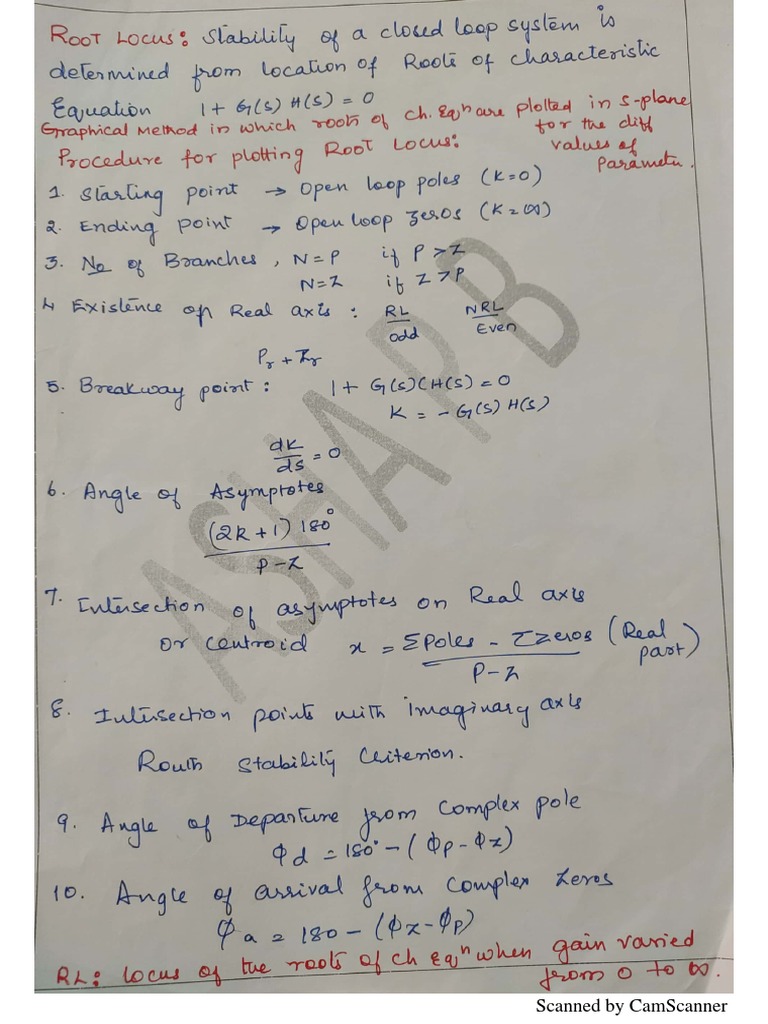 ROOT LOCUS: Stability of a closed loop system is
determined from location of Roots of characteristic
Equation 1 + G(s) H(s) = 0
Graphical Method in which roots of ch. Eqn are plotted in s-plane
for the diff
values of
parameter.
Procedure for plotting ROOT LOCUS:
1. Starting point → Open loop poles (K=0)
2. Ending point → Open loop zeros (K=∞)
3. No of Branches, N=P if P>Z
N=Z if Z>P
4 Existence of Real axis: RL NRL
odd Even
Pr + Zr
5. Breakway point: 1 + G(s)(H(s) = 0
K = - G(s) H(s)
dK/ds = 0
6. Angle of Asymptotes
(2k+1) 180°
P-Z
7. Intersection of asymptotes on Real axis
or centroid x = ΣPoles - ΣZeros (Real part)
P-Z
8. Intersection points with imaginary axis
Routh Stability Criterion.
9. Angle of Departure from complex pole
ϕd = 180° - (ϕp - ϕz)
10. Angle of arrival from complex zeros
ϕa = 180 - (ϕz - ϕp)
RL: locus of the roots of ch Eqn when gain varied
from 0 to ∞.
ASHA P B
Scanned by CamScanner